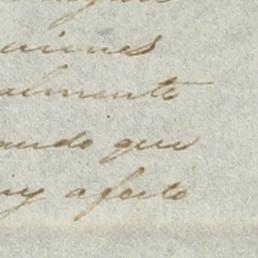 uiones
almente
ando que
uy afecto